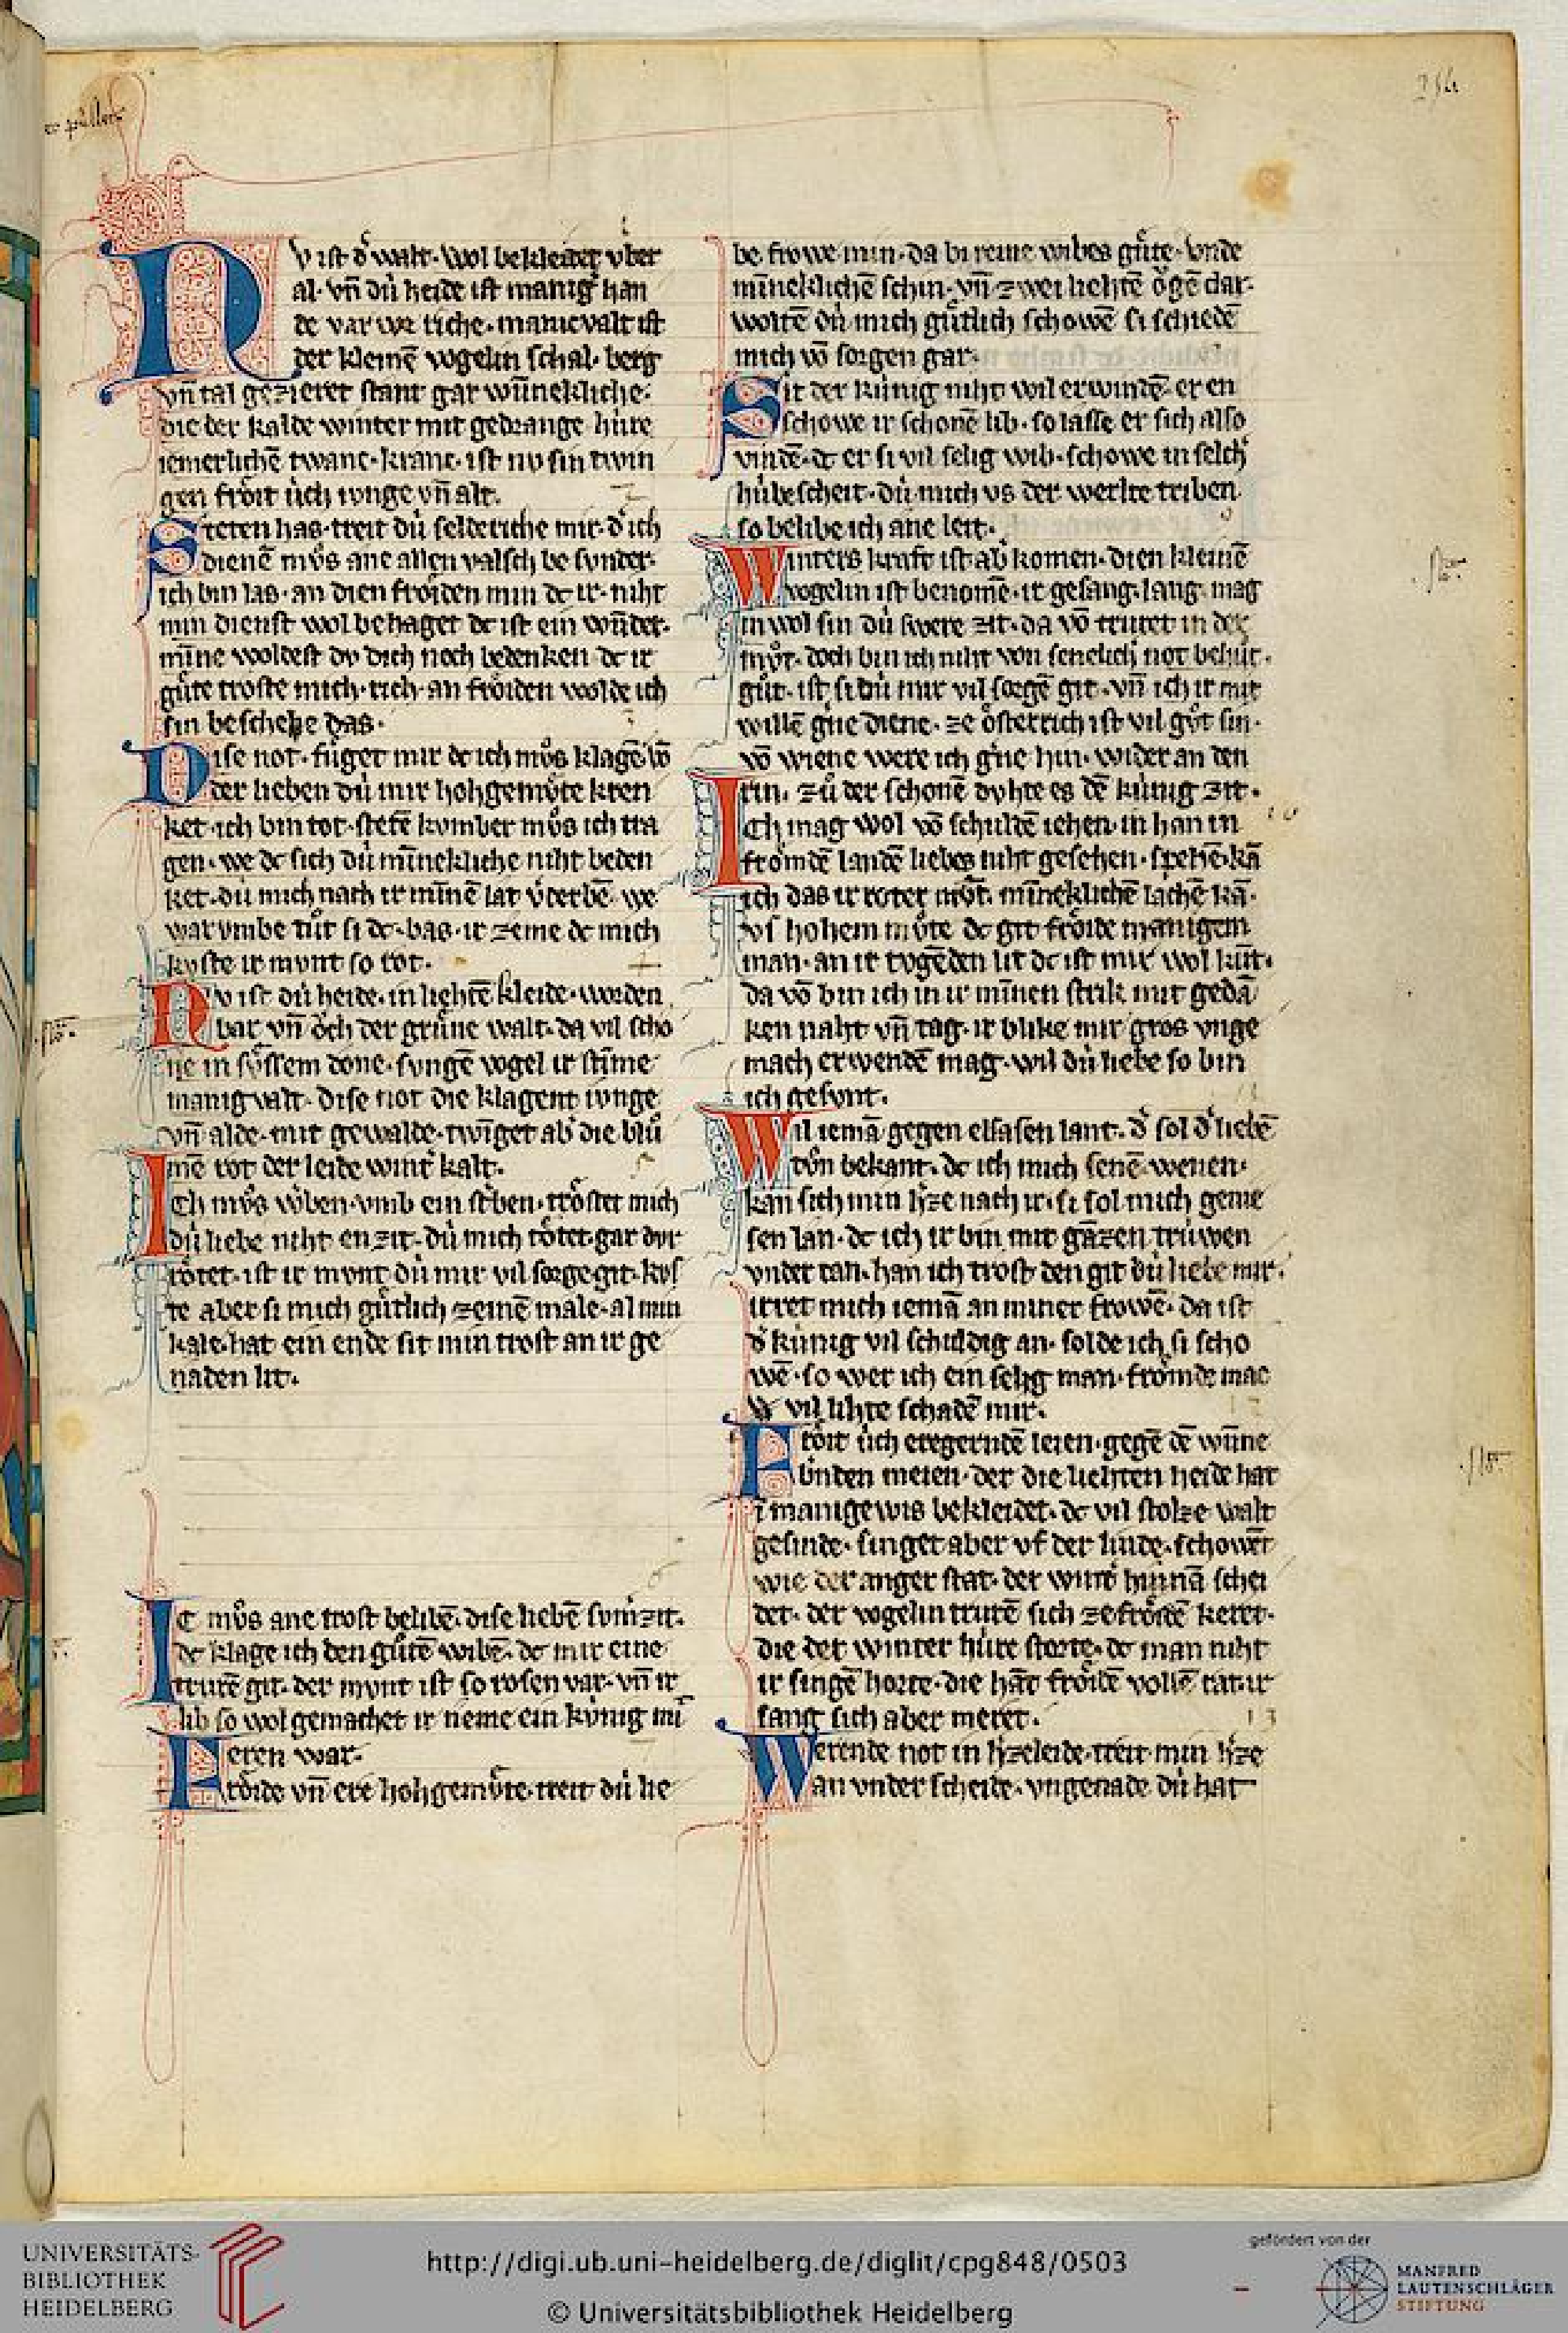 254
püller
Nv ist dˢ walt. wol bekleidet vber
al. vn̄ dú heide ist manigˢ han
de varwe riche. manicvalt ist
der kleinē vogelin schal. berg
vn̄ tal gezieret stant gar wūnekliche.
die der kalde winter mit gedrange húre
iemerlichē twanc. kranc. ist nv sin twin
gen frôit úch iunge vn̄ alt.
Steten has. treit dú selderiche mir. dˢ ich
dienē mvͦs ane allen valsch besunder.
ich bin las. an dien frôiden min dc ir. niht
min dienst wol behaget dc ist ein wūder.
mīne woldest dv dich noch bedenken dc ir
gûte troste mich. rich. an frôiden wolde ich
sin beschehe das.
Dise not. fûget mir dc ich mvͦs klagē vō
der lieben dú mir hohgemvͤte kren
ket. ich bin tot. stetē kvmber mvͦs ich tra
gen. we dc sich dú mīnekliche niht beden
ket. dú mich nach ir mīnē lat vˢterbē. we
warvmbe tût si dc. bas. ir zeme dc mich
kvste ir mvnt so rot.
Nv ist dú heide. in liehtē kleide. worden
bar vn̄ ôch der grûne walt. da vil scho
ne in sv̂ssem done. svngē vogel ir stīme
manigvalt. dise not die klagent ivnge
vn̄ alde. mit gewalde. twīget abˢ die blû
mē rot der leide wintˢ kalt.
Ich mvͦs wˢben. vmb ein stˢben. trôstet mich
dú liebe niht enzit. dú mich tôtet. gar dvr
rôtet. ist ir mvnt dú mir vil sorge git. kvs
te aber si mich gûtlich zeinē male. al min
kale. hat ein ende sit min trost an ir ge
naden lit.
Ic mvͦs ane trost belibē. dise liebē svmˢzit.
dc klage ich den gûtē wibē. dc mir eine
trurē git. der mvnt ist so rosen var. vn̄ ir
lib so wol gemachet ir neme ein kúnig mī
eren war.
Frôide vn̄ ere hohgemvͤte. treit dú lie
be frowe min. da bi reine wibes gûte. vnde
mīneklichē schin. vn̄ zwei liehtē ôgē clar.
woltē dú mich gûtlich schowē si schiedē
mich vō sorgen gar.
Sit der kúnig niht wil erwindē. er en
schowe ir schonē lib. so lasse er sich also
vindē. dc er si vil selig wib. schowe in selchˢ
húbescheit. dú mich vs der werlte triben.
so belibe ich ane leit.
Winters kraft ist abˢ komen. dien kleinē
vogelin ist benomē. ir gesang. lang. mag
in wol sin dú swere zit. da vō trutet in der
mvͦt. doch bin ich niht von senelichˢ not behût.
gût. ist si dú mir vil sorgē git. vn̄ ich ir mit
willē gˢne diene. ze ôsterrich ist vil gût sin.
vō wiene were ich gˢne hin. wider an den
rin. zû der schonē dvhte es dē kúnig zit.
Ich mag wol vō schuldē iehen. in han in
frômdē landē liebes niht gesehen. spehē. kā
ich das ir roter mvͦt. mīneklichē lachē kā.
vs hohem mvͦte dc git frôide manigem
man. an ir tvgēden lit dc ist mir wol kūt.
da vō bin ich in ir mīnen strik mit gedā
ken naht vn̄ tag. ir blike mir gros vnge
mach erwendē mag. wil dú liebe so bin
ich gesvnt.
Wil iemā gegen elsasen lant. dˢ sol dˢ liebē
tûn bekant. dc ich mich senē. wenen.
kan sich min hˢze nach ir. si sol mich gene
sen lan. dc ich ir bin mit gāzen trúwen
vnder tan. han ich trost den git dú liebe mir.
irret mich iemā an miner frowē. da ist
dˢ kúnig vil schuldig an. solde ich si scho
wē. so wer ich ein selig man. frômde mac
vil lihte schadē mir.
Frôit úch eregerndē leien. gegē dē wūne
bˢnden meien. der die liehten heide hat
ī manige wis bekleidet. dc vil stolze walt
gesinde. singet aber vf der linde. schowēt
wie der anger stat. der wintˢ hinnā schei
det. der vogelin trurē sich ze frôidē keret.
die der winter húre storte. dc man niht
ir singē horte. die hāt frôidē vollē rat. ir
sang sich aber meret.
Werende not in hˢzeleide. treit min hˢze
an vnderscheide. vngenade dú hat
UNIVERSITÄTS-
BIBLIOTHEK
HEIDELBERG
http://digi.ub.uni-heidelberg.de/diglit/cpg848/0503
© Universitätsbibliothek Heidelberg
gefördert von der
MANFRED
LAUTENSCHLÄGER
STIFTUNG